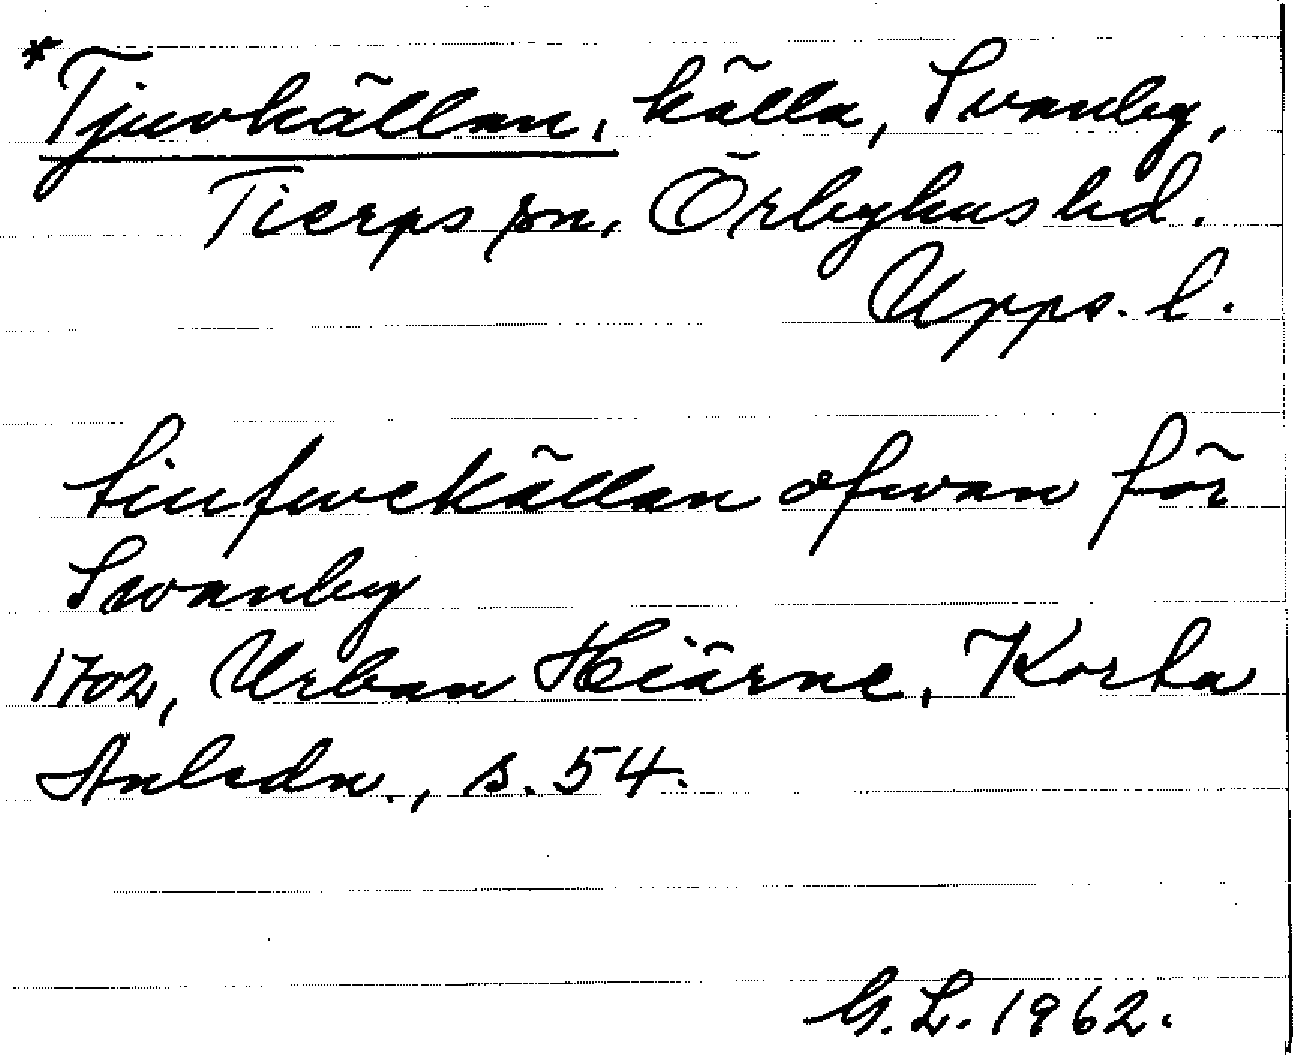 *Tjuvkällan, källa, Svanby,
Tierps sn, Örbyhus hd.
Upps. l.
tiufwekällan ofwan för
Swanby
1702, Urban Hiärne, Korta
Anledn., s. 54.
G. L. 1962.